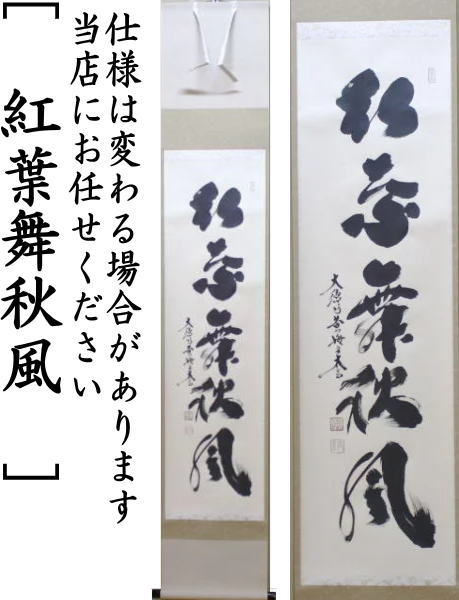 仕様は変わる場合があります
当店にお任せください
[紅葉舞秋風]
紅葉舞秋風
紅葉舞秋風